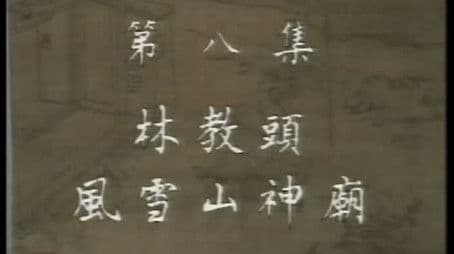 第八集
林教頭
風雪山神廟